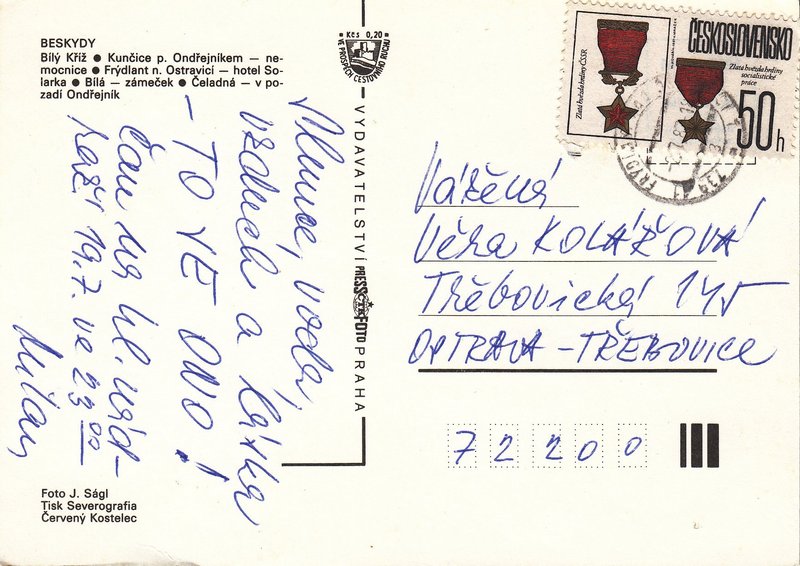 BESKYDY
Bílý Kříž ● Kunčice p. Ondřejníkem – ne-
mocnice ● Frýdlant n. Ostravicí – hotel So-
larka ● Bílá – zámeček ● Čeladná – v po-
zadí Ondřejník
Slunce, voda,
vzduch a láska
– TO JE ONO!
Čau na hl. nád-
raží 19.7. ve 23⁰⁰
Milan
Foto J. Ságl
Tisk Severografia
Červený Kostelec
Kčs 0,20
VE PROSPĚCH CESTOVNÍHO RUCHU
VYDAVATELSTVÍ PRESSFOTO PRAHA
ČTK
Zlatá hvězda hrdiny ČSSR
ČESKOSLOVENSKO
Zlatá hvězda hrdiny
socialistické
práce
50h
Vážená
Věra KOLÁŘOVÁ
Třebovická 145
OSTRAVA – TŘEBOVICE
72200